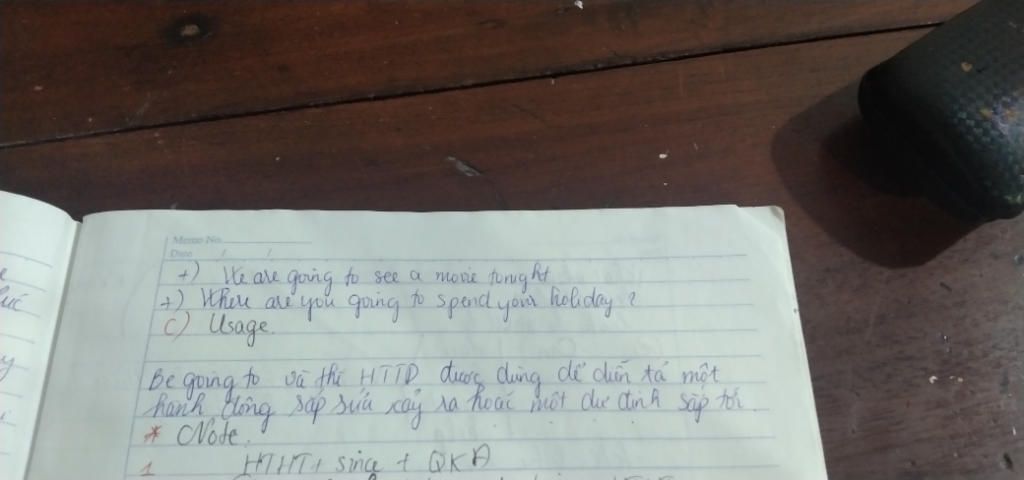 Memo No.
Date / /
+) We are going to see a movie tonight
+) Where are you going to spend your holiday ?
C) Usage.
Be going to và thì HTTD được dùng để diễn tả một
hành động sắp sửa xảy ra hoặc một dự định sắp tới.
* Note.
1 HTHT + since + QKĐ